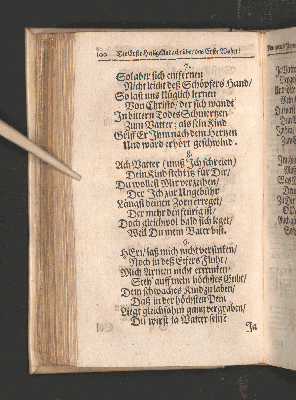 100 Die Erste Heilige Andacht über das Erste Wort:
7.
So laber sich entfernen
Nicht leicht deß Schöpfers Hand/
So laß uns klüglich lernen
Von Christo/ der sich wandt
In bittern Todes Schmertzen
Zum Vatter; als sein Kind
Griff Er Ihm nach dem Hertzen
Und ward erhört geschwind.
8.
Ach Vatter (muß Ich schreien)
Dein Kind steht itz für Dir/
Du wollest Mir verzeihen/
Der Ich zur Ungebühr
Längst deinen Zorn erreget/
Der mehr den feurig ist;
Doch gleichwol bald sich leget/
Weil Du mein Vater bist.
9.
HErr/ laß mich nicht versinken/
Noch in deß Eifers Fluht/
Mich Armen nicht ertrinken/
Seh' auff mein höchstes Guht/
Dein schwaches Kind zu laben/
Daß in der höchsten Pein
Liegt gleichsahm gantz vergraben/
Du wirst ja Vatter sein?
Ja